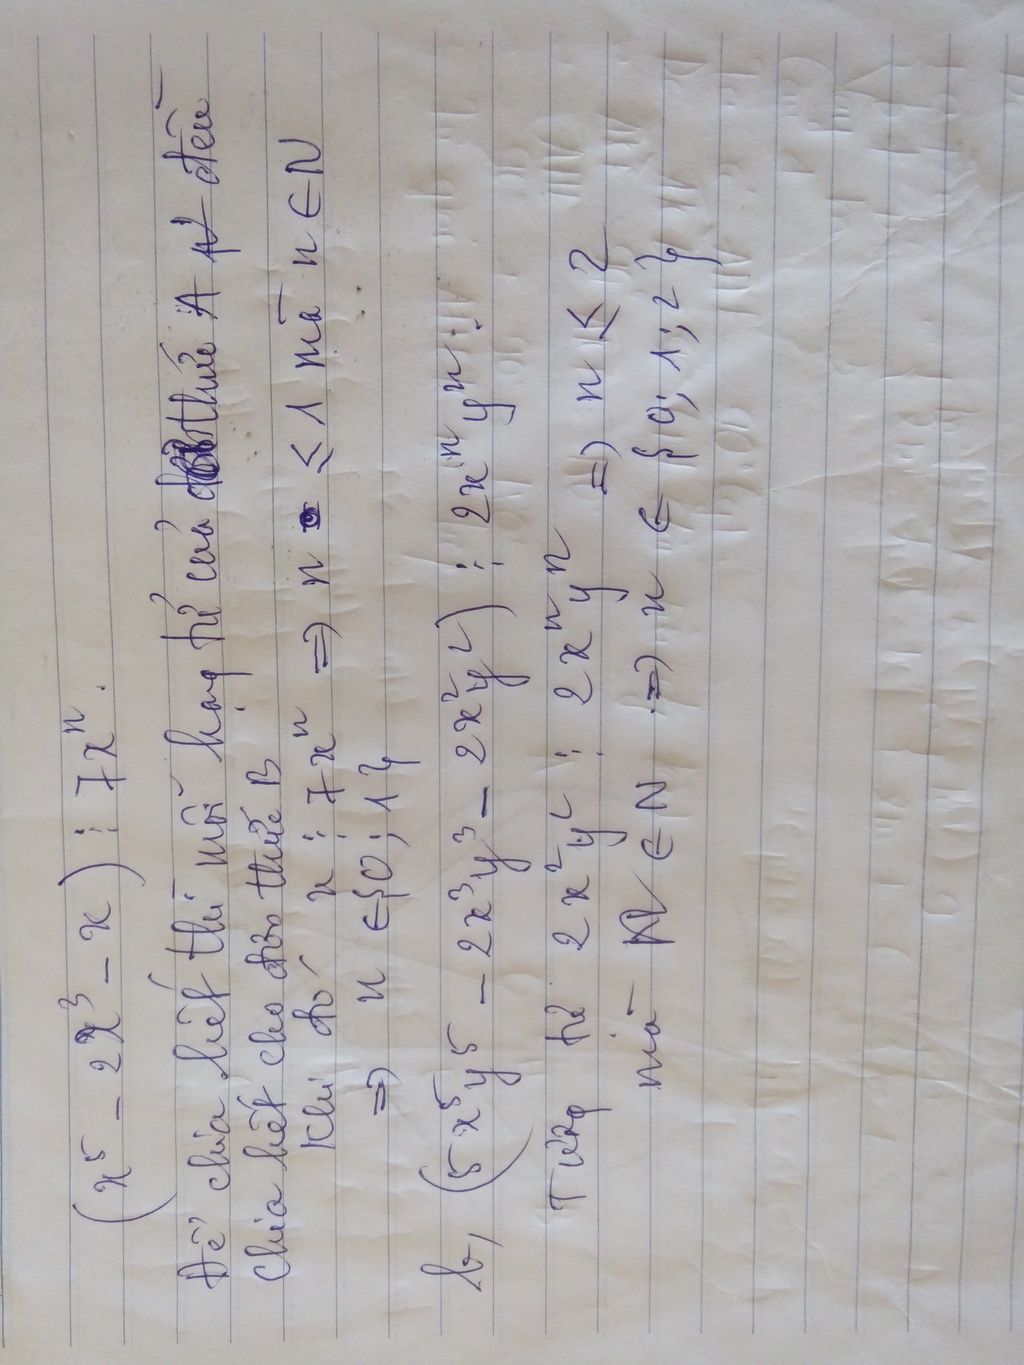 (x⁵ - 2x³ - x) ⋮ 7xⁿ.
Để chia hết thì mỗi hạng tử của thức A đều
chia hết cho đơn thức B
Khi đó x ⋮ 7xⁿ ⇒ n ≤ 1 mà n ∈ N
⇒ n ∈ {0; 1}
b, (5x⁵y⁵ - 2x³y³ - 2x²y²) ⋮ 2xⁿyⁿ.
Tương tự 2x²y² ⋮ 2xⁿyⁿ ⇒ n ≤ 2
mà ∈ N ⇒ n ∈ {0; 1; 2}